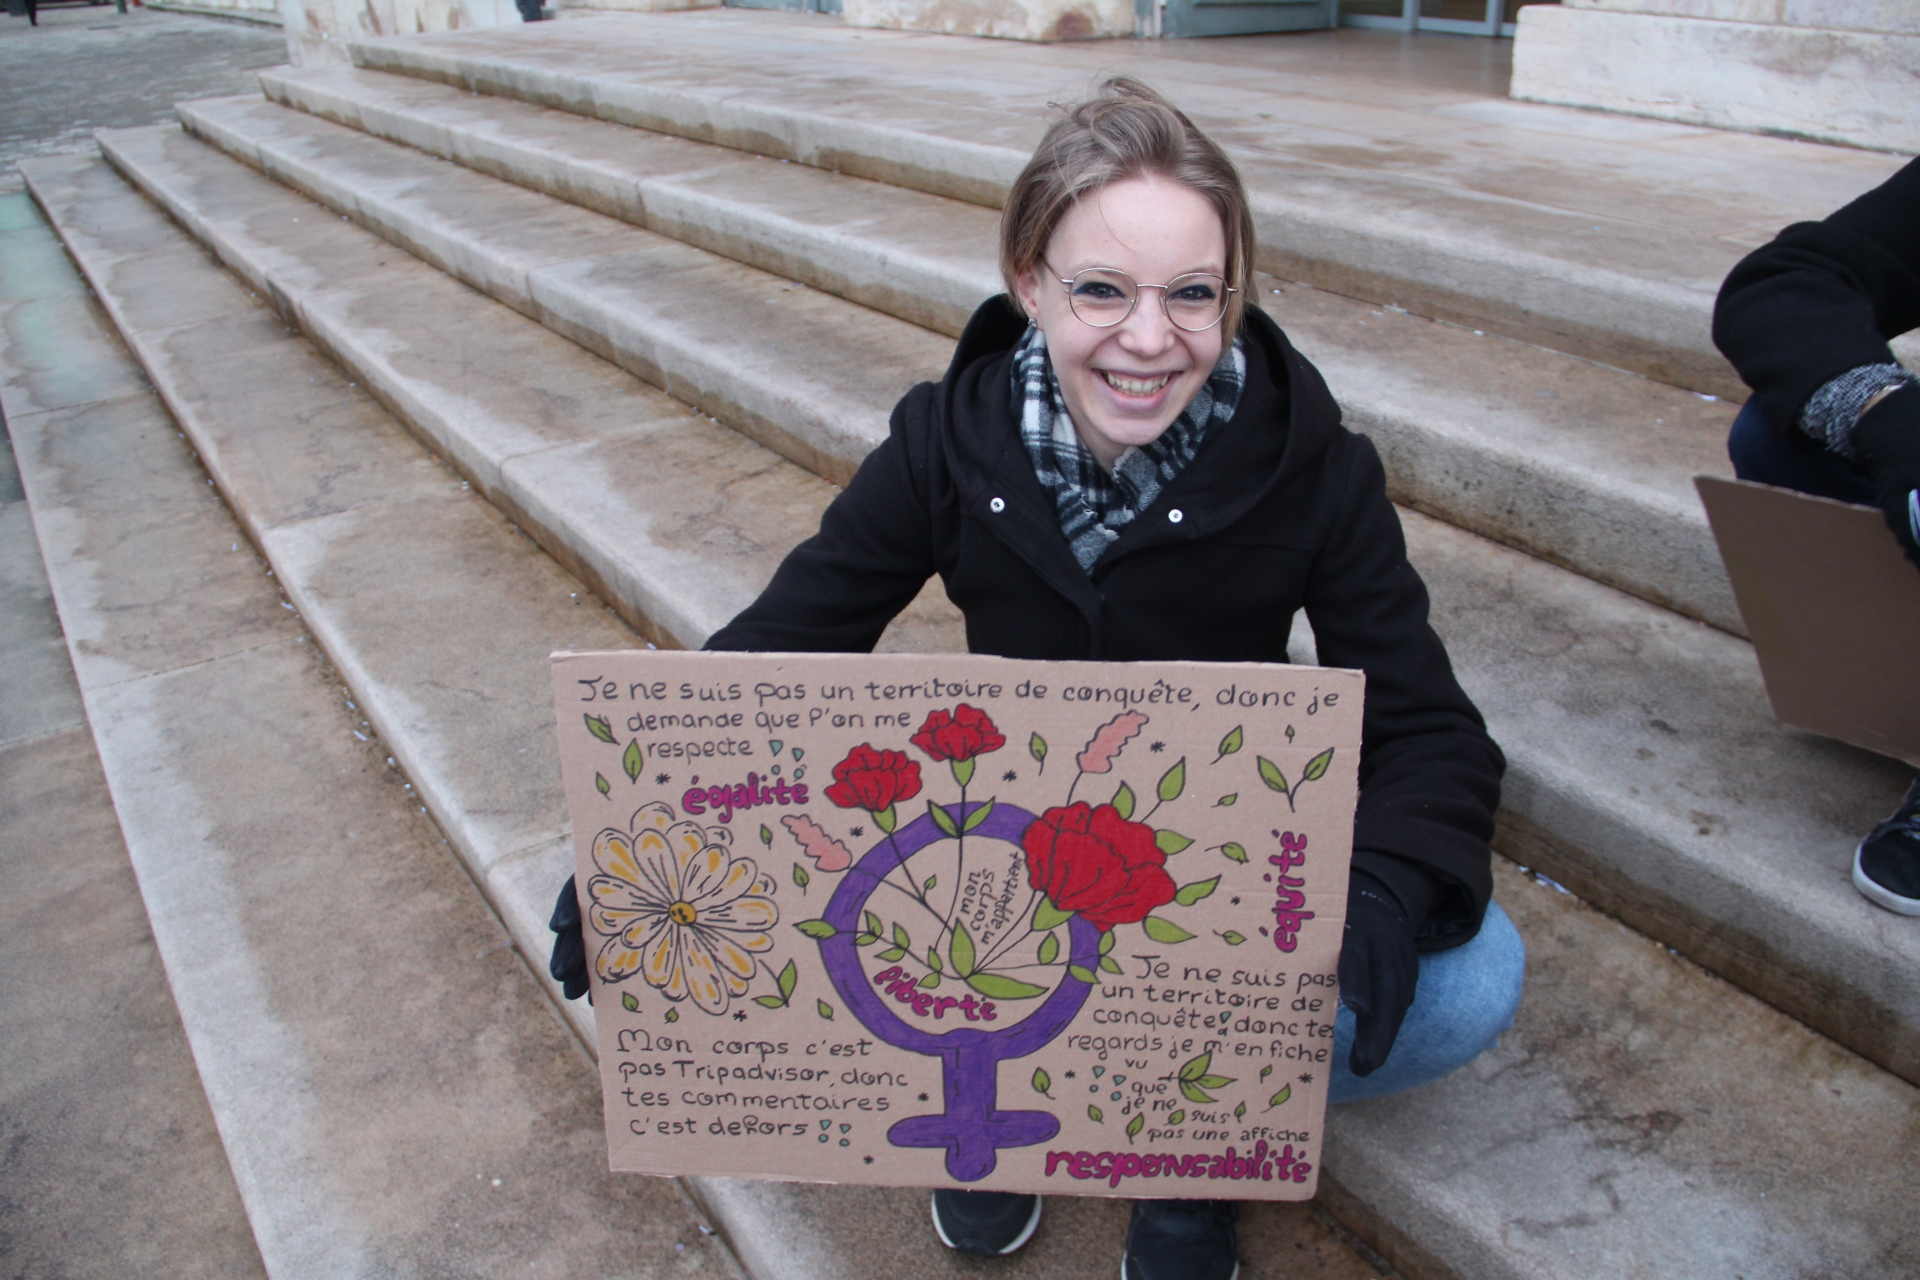 Je ne suis pas un territoire de conquête, donc je
demande que l'on me
respecte !!
égalité
équité
mon
corps
m'appartient
liberté
Mon corps c'est
pas Tripadvisor, donc
tes commentaires
c'est dehors !!
Je ne suis pas
un territoire de
conquête! donc tes
regards je m'en fiche
vu
que
je ne
suis
pas une affiche
responsabilité